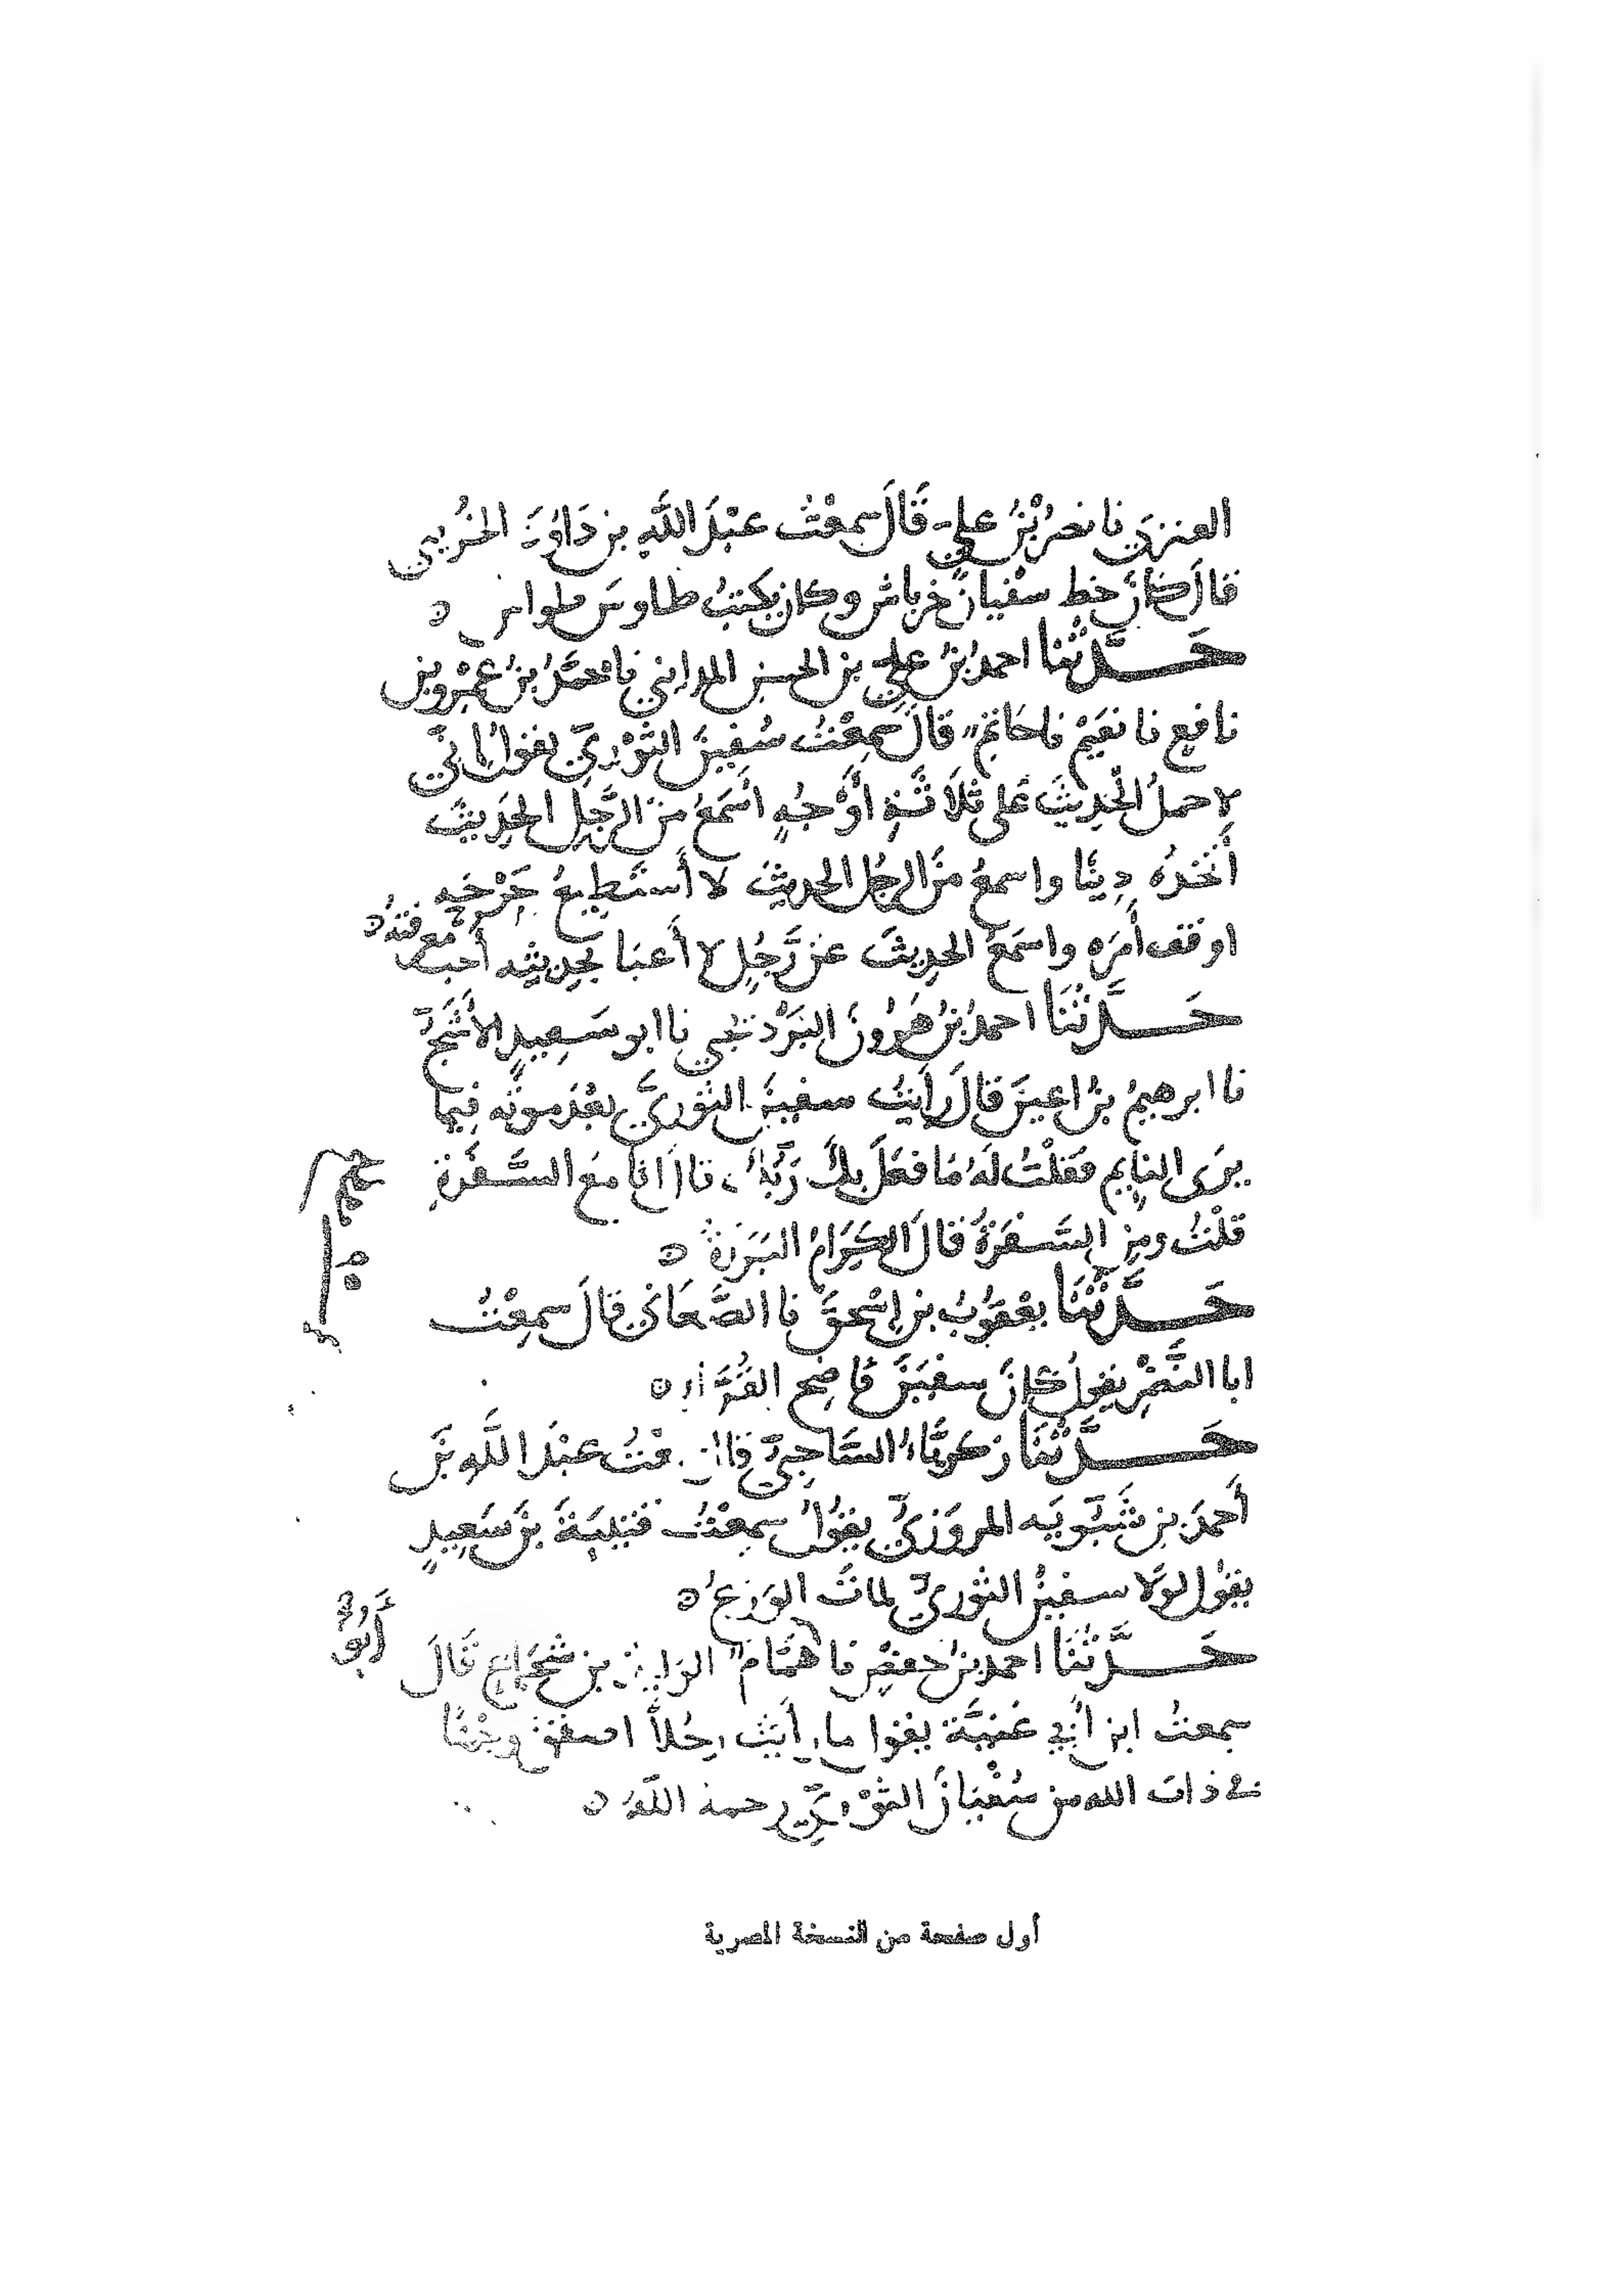 العنزي نا نصرُ بْنُ علي قَالَ سمعْتُ عبْدَ اللَّهِ بن دَاوُدَ الخُرَيبي
قالَ كانَ خط سفْيانَ خرباش وكان يكتبُ طاوس طواس ه
حَدَّثَنا احمدُ بنُ علي بن الحسن المدائني نا محمَّدُ بنُ عَمْرو بن
نافع نا نعَيْم نا حَاتم قالَ سمعْتُ سُفينَ الثوْرِيَّ يقولُ إنّي
لاحملُ الحَديثَ عَلى ثلاثَةِ أوْجُهٍ أسْمَعُ منَ الرَّجُلِ الحَدِيثَ
أتّخذهُ دِينًا واسمعُ منَ الرجُل الحديثَ لا أستَطِيعُ جَرْحَه
اوقف أمرَه واسمَعُ الحديثَ عن رَّجُلٍ لا أعبَا بحديثه أحب معرفتهُ ه
حَدَّثَنَا احمدُ بنُ هَرُونَ البَرْديجي نا ابو سَعِيدٍ الأشَجّ
نا ابرهيمُ بنُ اعينَ قالَ رأيتُ سفينَ الثوريَّ بعْدَ موته فيما
يرَى النايم فقلْتُ لَهُ مَا فعَلَ بكَ رَبّكَ قال انا معَ السَّفَرَةِ
قلْتُ ومن السَّفَرَةُ قالَ الكِرَامُ البَرَرَةُ ه
حَدَّثَنَا يعْقوُبُ بن إسْحقَ نا الصَّغَاني قالَ سمعْتُ
ابا النَّضْرِ يقولُ كانَ سفينُ فاضح القُرَّاء ه
حَدَّثَنَا زكريَّاءُ السَّاجيّ قال سمعْتُ عبْدَ اللَّهِ بنَ
أحمدَ بن شَبّويَه المروَزيَّ يقولُ سمعْتُ قتيبَةَ بنَ سَعِيدٍ
يقولُ لولا سفينُ الثوريّ لماتَ الورَعُ ه
حَدَّثَنَا احمدُ بنُ جعفر نا همَّام الوليد بن شجَاع قَالَ
سمعتُ ابن أبي غَنِيَّة يقول ما رأيتُ رجُلاً اصفق وجْهًا
في ذات الله من سُفْيَانَ الثوْريّ رحمه اللَّهُ ه
أبُو
أول صفحة من النسخة المصرية